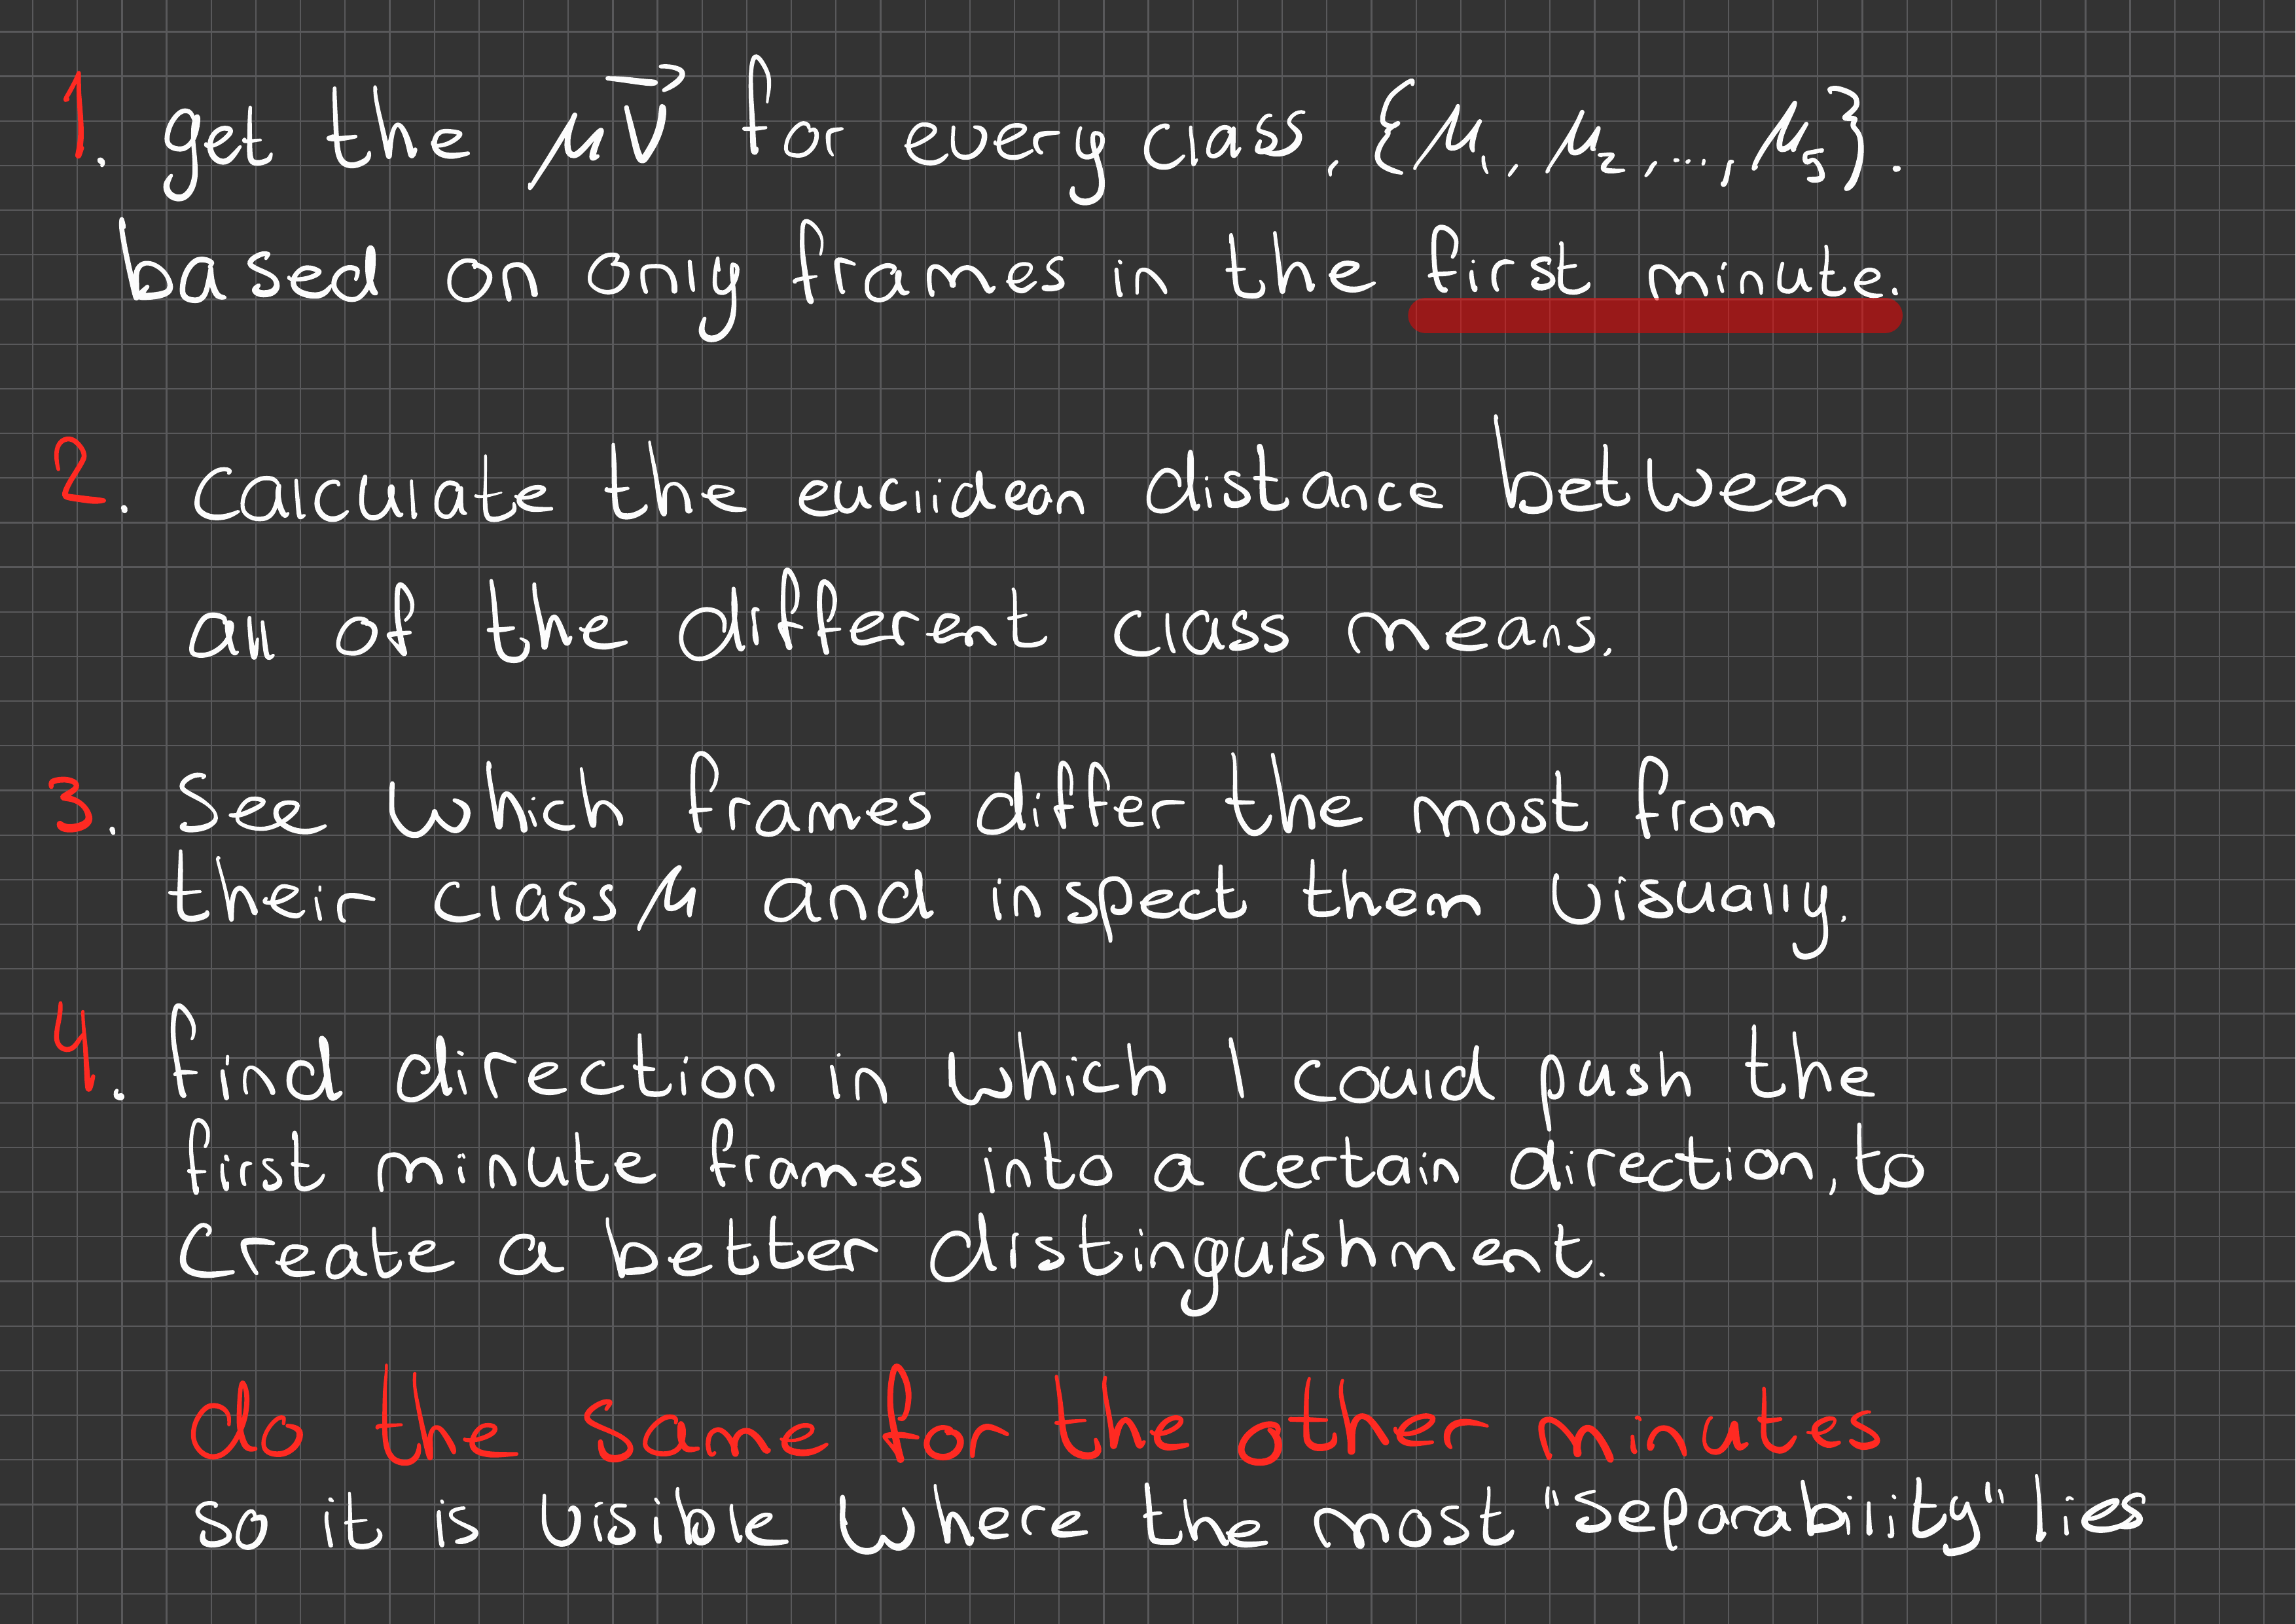 1. get the μV⃗ for every class, {μ₁, μ₂, ..., μ₅}.
based on only frames in the first minute.
2. Calculate the euclidean distance between
all of the different class means.
3. See which frames differ the most from
their class μ and inspect them visually.
4. find direction in which I could push the
first minute frames into a certain direction, to
create a better distinguishment.
do the same for the other minutes
so it is visible where the most "separability" lies